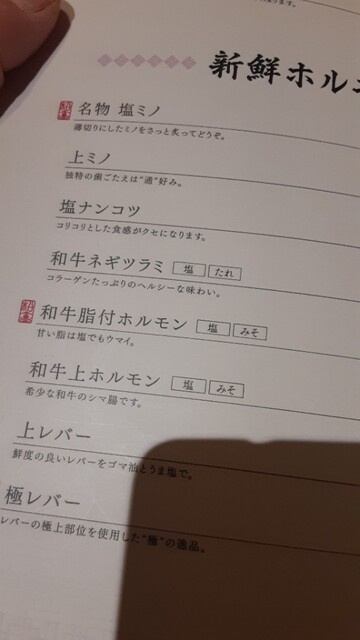 新鮮ホル
名物 塩ミノ
薄切りにしたミノをさっと炙ってどうぞ。
上ミノ
独特の歯ごたえは"通"好み。
塩ナンコツ
コリコリとした食感がクセになります。
和牛ネギツラミ 塩 たれ
コラーゲンたっぷりのヘルシーな味わい。
和牛脂付ホルモン 塩 みそ
甘い脂は塩でもウマイ。
和牛上ホルモン 塩 みそ
希少な和牛のシマ腸です。
上レバー
鮮度の良いレバーをゴマ油とうま塩で。
極レバー
レバーの極上部位を使用した"極"の逸品。